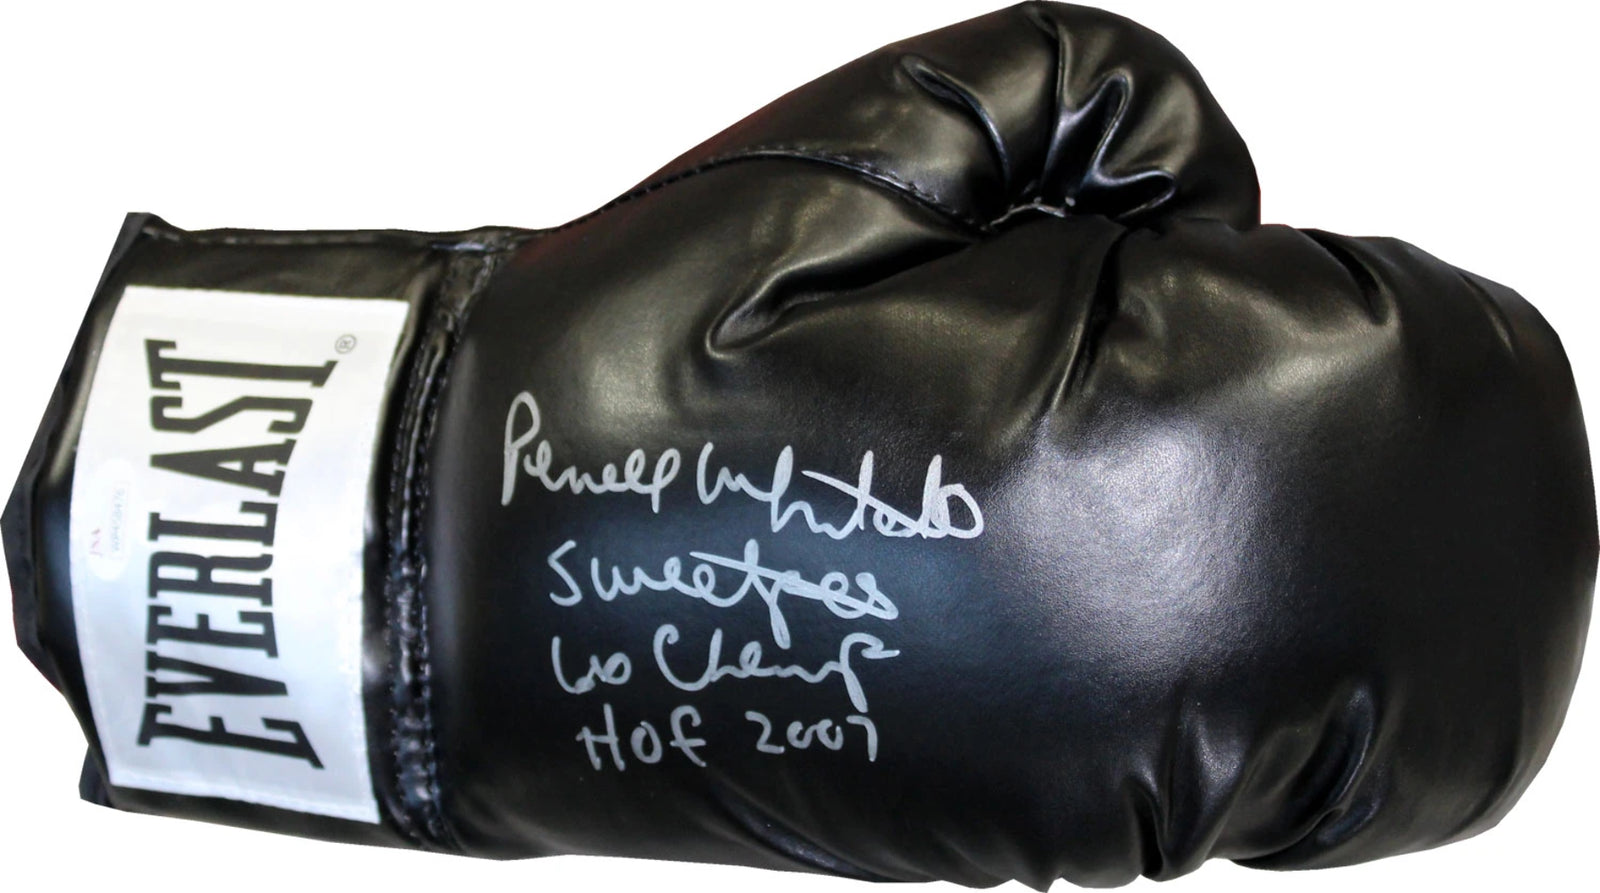 EVERLAST®
JSA
WP458476
Pernell Whitaker
Sweetpea
Wo Champ
HOF 2007